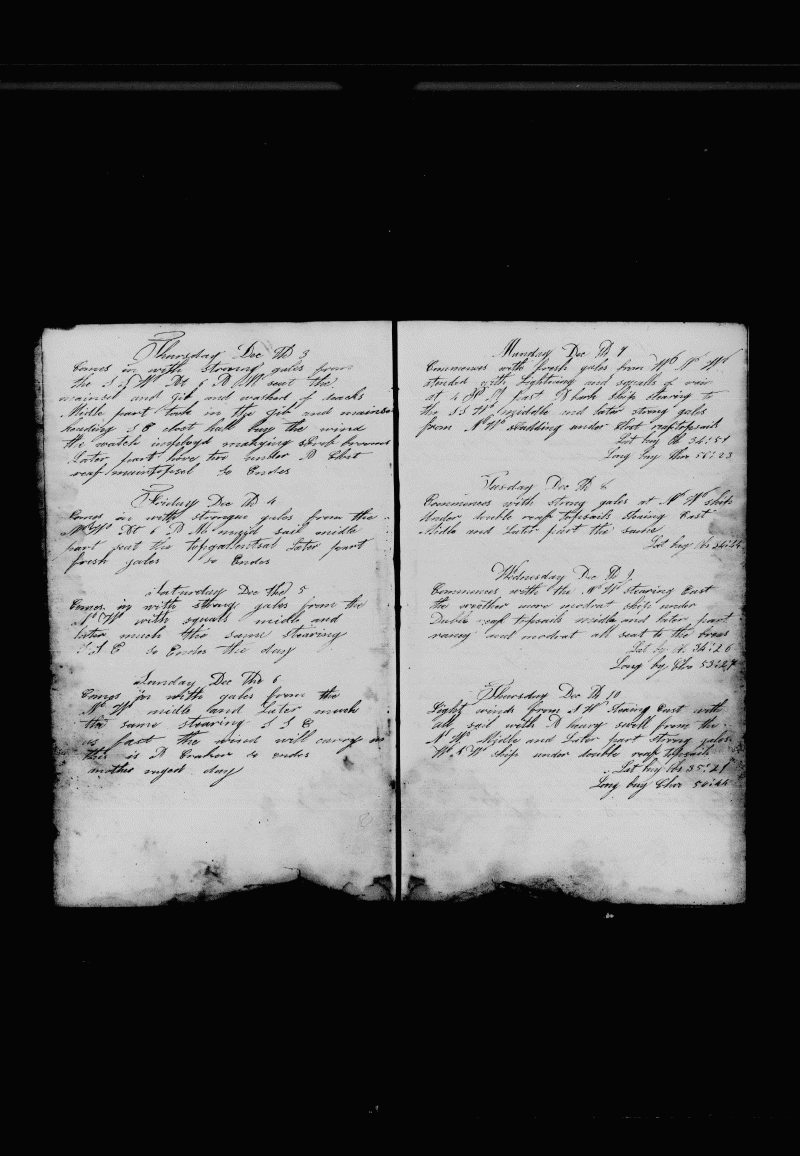 Thursday Dec Th 3
Comes in with strong gales from
the S S W At 6 A M set the
mainsel and Gib and washed of decks
Midle part tuk in the Gib and mainsel
heading S E clost hall buy the wind
the watch imployd makying
Later part hove too under A Clost
reaf maintopsel So Endes
Friday Dec Th 4
Comes in with strongue gales from the
N W At 6 A M sail midle
part set the topgallentsal Later part
fresh gales So Endes
Saturday Dec the 5
Comes in with strong gales from the
N W with squals midle and
later much the same stearing
S S E So Endes the day
Sunday Dec The 6
Comes in with gales from the
N W midle and Later much
the same stearing S S E
as fast the wind will carry us
this is A So endes
another day
Monday Dec Th 7
Commences with fresh gales from W N W
atended with Lightning and squalls of rain
at 4 P M past A bark ship stearing to
the S S W middle and later strong gales
from N W skudding under Clost reaf topsails
Lat buy Ob 34:51
Long buy Chro 56:23
Tusday Dec Th 8
Commences with strong gales at N W ship
under double reaf topsails stearing East
Midle and Later part the same
Lat buy Obs 34:44
Wednesday Dec Th 9
Commences with the N W stearing East
the weather more modrat ship under
Duble reaf topsails midle and later part
rainy and modrat all seat to the
Lat by Ob 34:26
Long by Chro 53:27
Thursday Dec Th 10
Light winds from S W Stearing East with
all sail with A heavy swell from the
N W Midle and Later part strong gales
W N W ship under double reaf topsails
Lat buy Obs 35:21
Long buy Chro 50:44